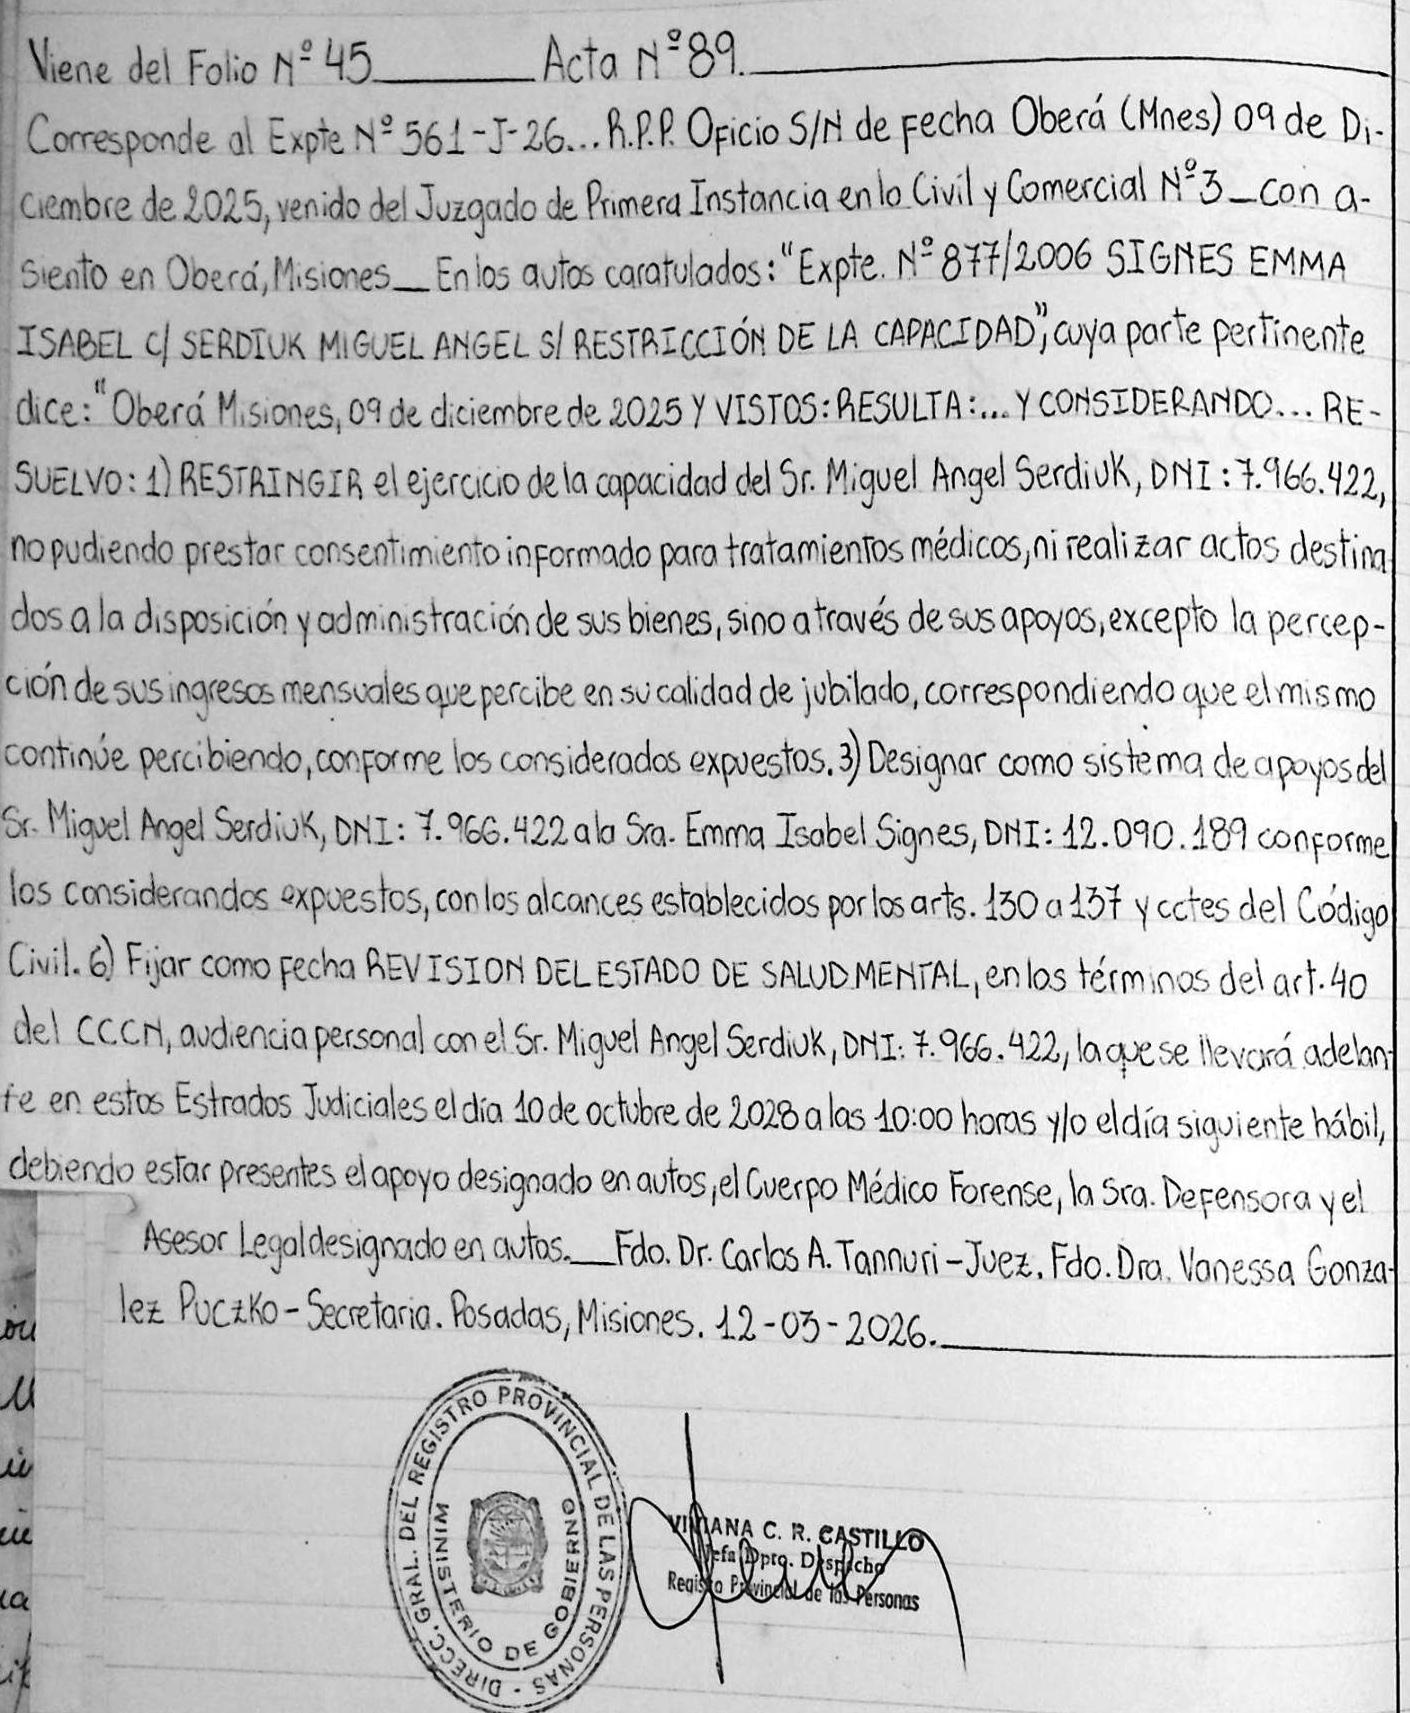 Viene del Folio Nº 45________ Acta Nº 89.________
Corresponde al Expte Nº 561-J-26... R.P.P. Oficio S/N de fecha Oberá (Mnes) 09 de Di-
ciembre de 2025, venido del Juzgado de Primera Instancia en lo Civil y Comercial Nº 3_con a-
siento en Oberá, Misiones__ En los autos caratulados: "Expte. Nº 877/2006 SIGNES EMMA
ISABEL C/ SERDIUK MIGUEL ANGEL S/ RESTRICCIÓN DE LA CAPACIDAD", cuya parte pertinente
dice: "Oberá Misiones, 09 de diciembre de 2025 Y VISTOS: RESULTA:... Y CONSIDERANDO... RE-
SUELVO: 1) RESTRINGIR el ejercicio de la capacidad del Sr. Miguel Angel Serdiuk, DNI: 7.966.422,
no pudiendo prestar consentimiento informado para tratamientos médicos, ni realizar actos destina-
dos a la disposición y administración de sus bienes, sino a través de sus apoyos, excepto la percep-
ción de sus ingresos mensuales que percibe en su calidad de jubilado, correspondiendo que el mismo
continúe percibiendo, conforme los considerados expuestos. 3) Designar como sistema de apoyos del
Sr. Miguel Angel Serdiuk, DNI: 7.966.422 a la Sra. Emma Isabel Signes, DNI: 12.090.189 conforme
los considerandos expuestos, con los alcances establecidos por los arts. 130 a 137 y cctes del Código
Civil. 6) Fijar como fecha REVISION DEL ESTADO DE SALUD MENTAL, en los términos del art. 40
del CCCN, audiencia personal con el Sr. Miguel Angel Serdiuk, DNI: 7.966.422, la que se llevará adelan-
te en estos Estrados Judiciales el día 10 de octubre de 2028 a las 10:00 horas y/o el día siguiente hábil,
debiendo estar presentes el apoyo designado en autos, el Cuerpo Médico Forense, la Sra. Defensora y el
Asesor Legal designado en autos.__ Fdo. Dr. Carlos A. Tannuri - Juez. Fdo. Dra. Vanessa Gonza-
lez Puczko - Secretaria. Posadas, Misiones. 12-03-2026.________
DIRECC. GRAL. DEL REGISTRO PROVINCIAL DE LAS PERSONAS -
MINISTERIO DE GOBIERNO
VIVIANA C. R. CASTILLO
Jefa Dpto. Despacho
Registro Provincial de las Personas